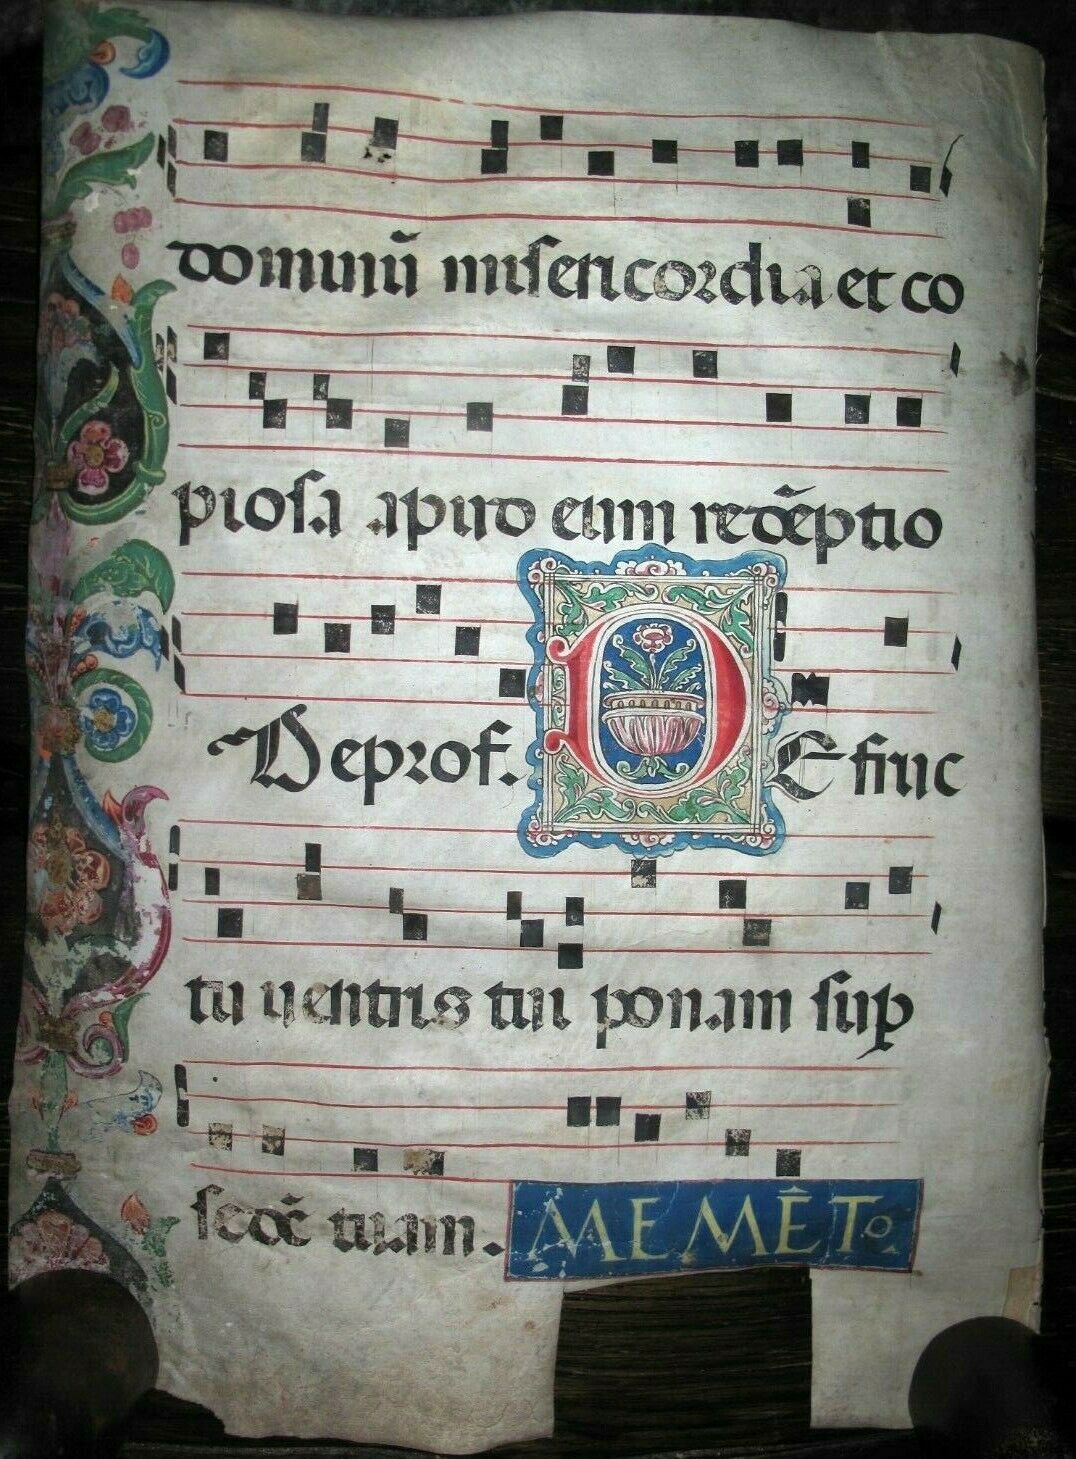 dominū misericordia et co
piosa apud eum redēptio
De prof. DE fruc
tu uentris tui ponam sup
sedē tuam.
MEMĒTO.